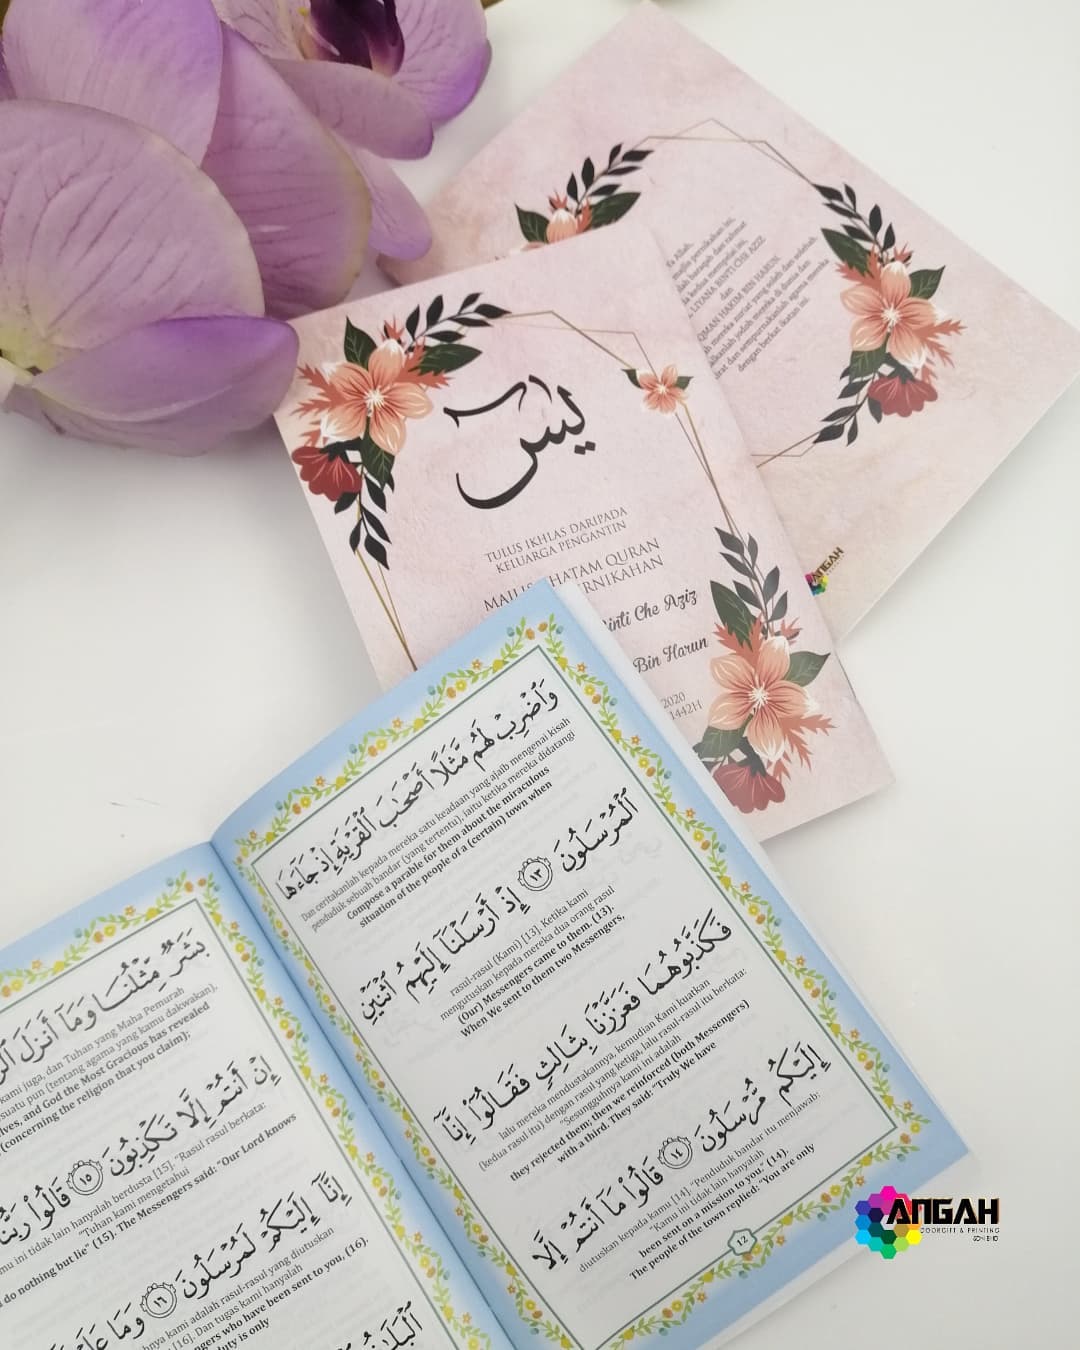 a Allah,
majlis pernikahan ini,
lah barapah dan rahmat
ka kedua mempelai ini,
LIYANA BINTI CHE AZIZ
dan
QMAN HAKIM BIN HARUN.
mereka zuriat yang soleh dan solehah,
kalkanlah jodoh mereka di dunia dan
irat dan sempurnakanlah agama mereka
dengan berkat ikatan ini.
ANGAH
يس
TULUS IKHLAS DARIPADA
KELUARGA PENGANTIN
MAJLIS KHATAM QURAN
RNIKAHAN
Binti Che Aziz
Bin Harun
2020
1442H
وَاضْرِبْ لَهُم مَّثَلًا أَصْحَابَ الْقَرْيَةِ إِذْ جَاءَهَا
Dan ceritakanlah kepada mereka satu keadaan yang ajaib mengenai kisah
penduduk sebuah bandar (yang tertentu), iaitu ketika mereka didatangi
Compose a parable for them about the miraculous
situation of the people of a (certain) town when
الْمُرْسَلُونَ ١٣ إِذْ أَرْسَلْنَا إِلَيْهِمُ اثْنَيْنِ
rasul-rasul (Kami) [13]. Ketika kami
mengutuskan kepada mereka dua orang rasul
(Our) Messengers came to them. (13).
When We sent to them two Messengers,
فَكَذَّبُوهُمَا فَعَزَّزْنَا بِثَالِثٍ فَقَالُوا إِنَّا
lalu mereka mendustakannya, kemudian Kami kuatkan
(kedua rasul itu) dengan rasul yang ketiga, lalu rasul-rasul itu berkata:
"Sesungguhnya kami ini adalah
they rejected them; then we reinforced (both Messengers)
with a third. They said: "Truly We have
إِلَيْكُم مُّرْسَلُونَ ١٤ قَالُوا مَا أَنتُمْ إِلَّا
diutuskan kepada kamu [14]. "Penduduk bandar itu menjawab:
"Kamu ini tidak lain hanyalah
been sent on a mission to you." (14).
The people of the town replied: "You are only
12
بَشَرٌ مِّثْلُنَا وَمَا أَنزَلَ
kami juga, dan Tuhan yang Maha Pemurah
suatu pun (tentang agama yang kamu dakwakan),
lves, and God the Most Gracious has revealed
(concerning the religion that you claim);
إِنْ أَنتُمْ إِلَّا تَكْذِبُونَ ١٥ قَالُوا رَبُّنَا
mu ini tidak lain hanyalah berdusta [15]. "Rasul rasul berkata:
"Tuhan kami mengetahui
do nothing but lie" (15). The Messengers said: "Our Lord knows
إِنَّا إِلَيْكُمْ لَمُرْسَلُونَ ١٦ وَمَا
hnya kami adalah rasul-rasul yang diutuskan
[16]. Dan tugas kami hanyalah
ngers who have been sent to you, (16).
duty is only
الْبَلَاغُ
ANGAH
DOORGIFT & PRINTING
SDN BHD